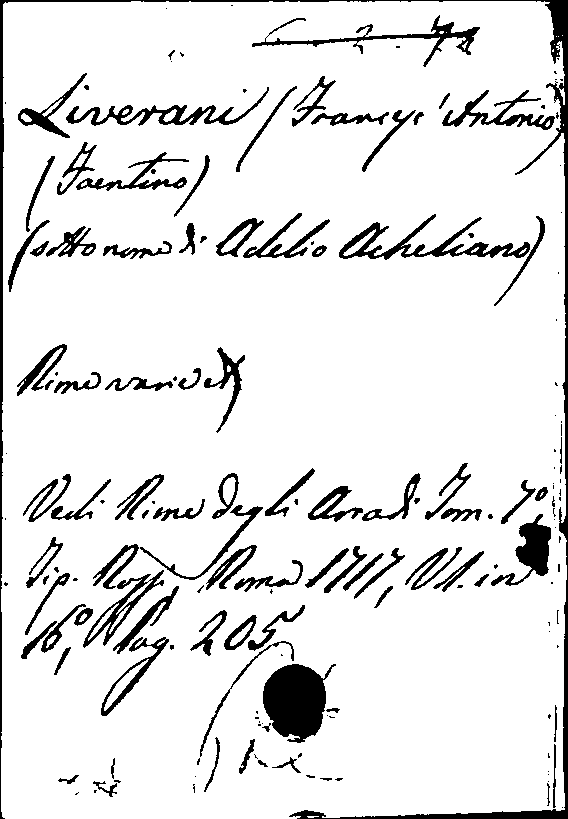 Liverani (Franc.° Antonio)
(Faentino)
(sotto nome di Adelio Acheliano)
Rime varie
Vedi Rime degli Arcadi Tom. 7°,
Tip. Rossi, Roma 1717, V1. in
16°, Pag. 205